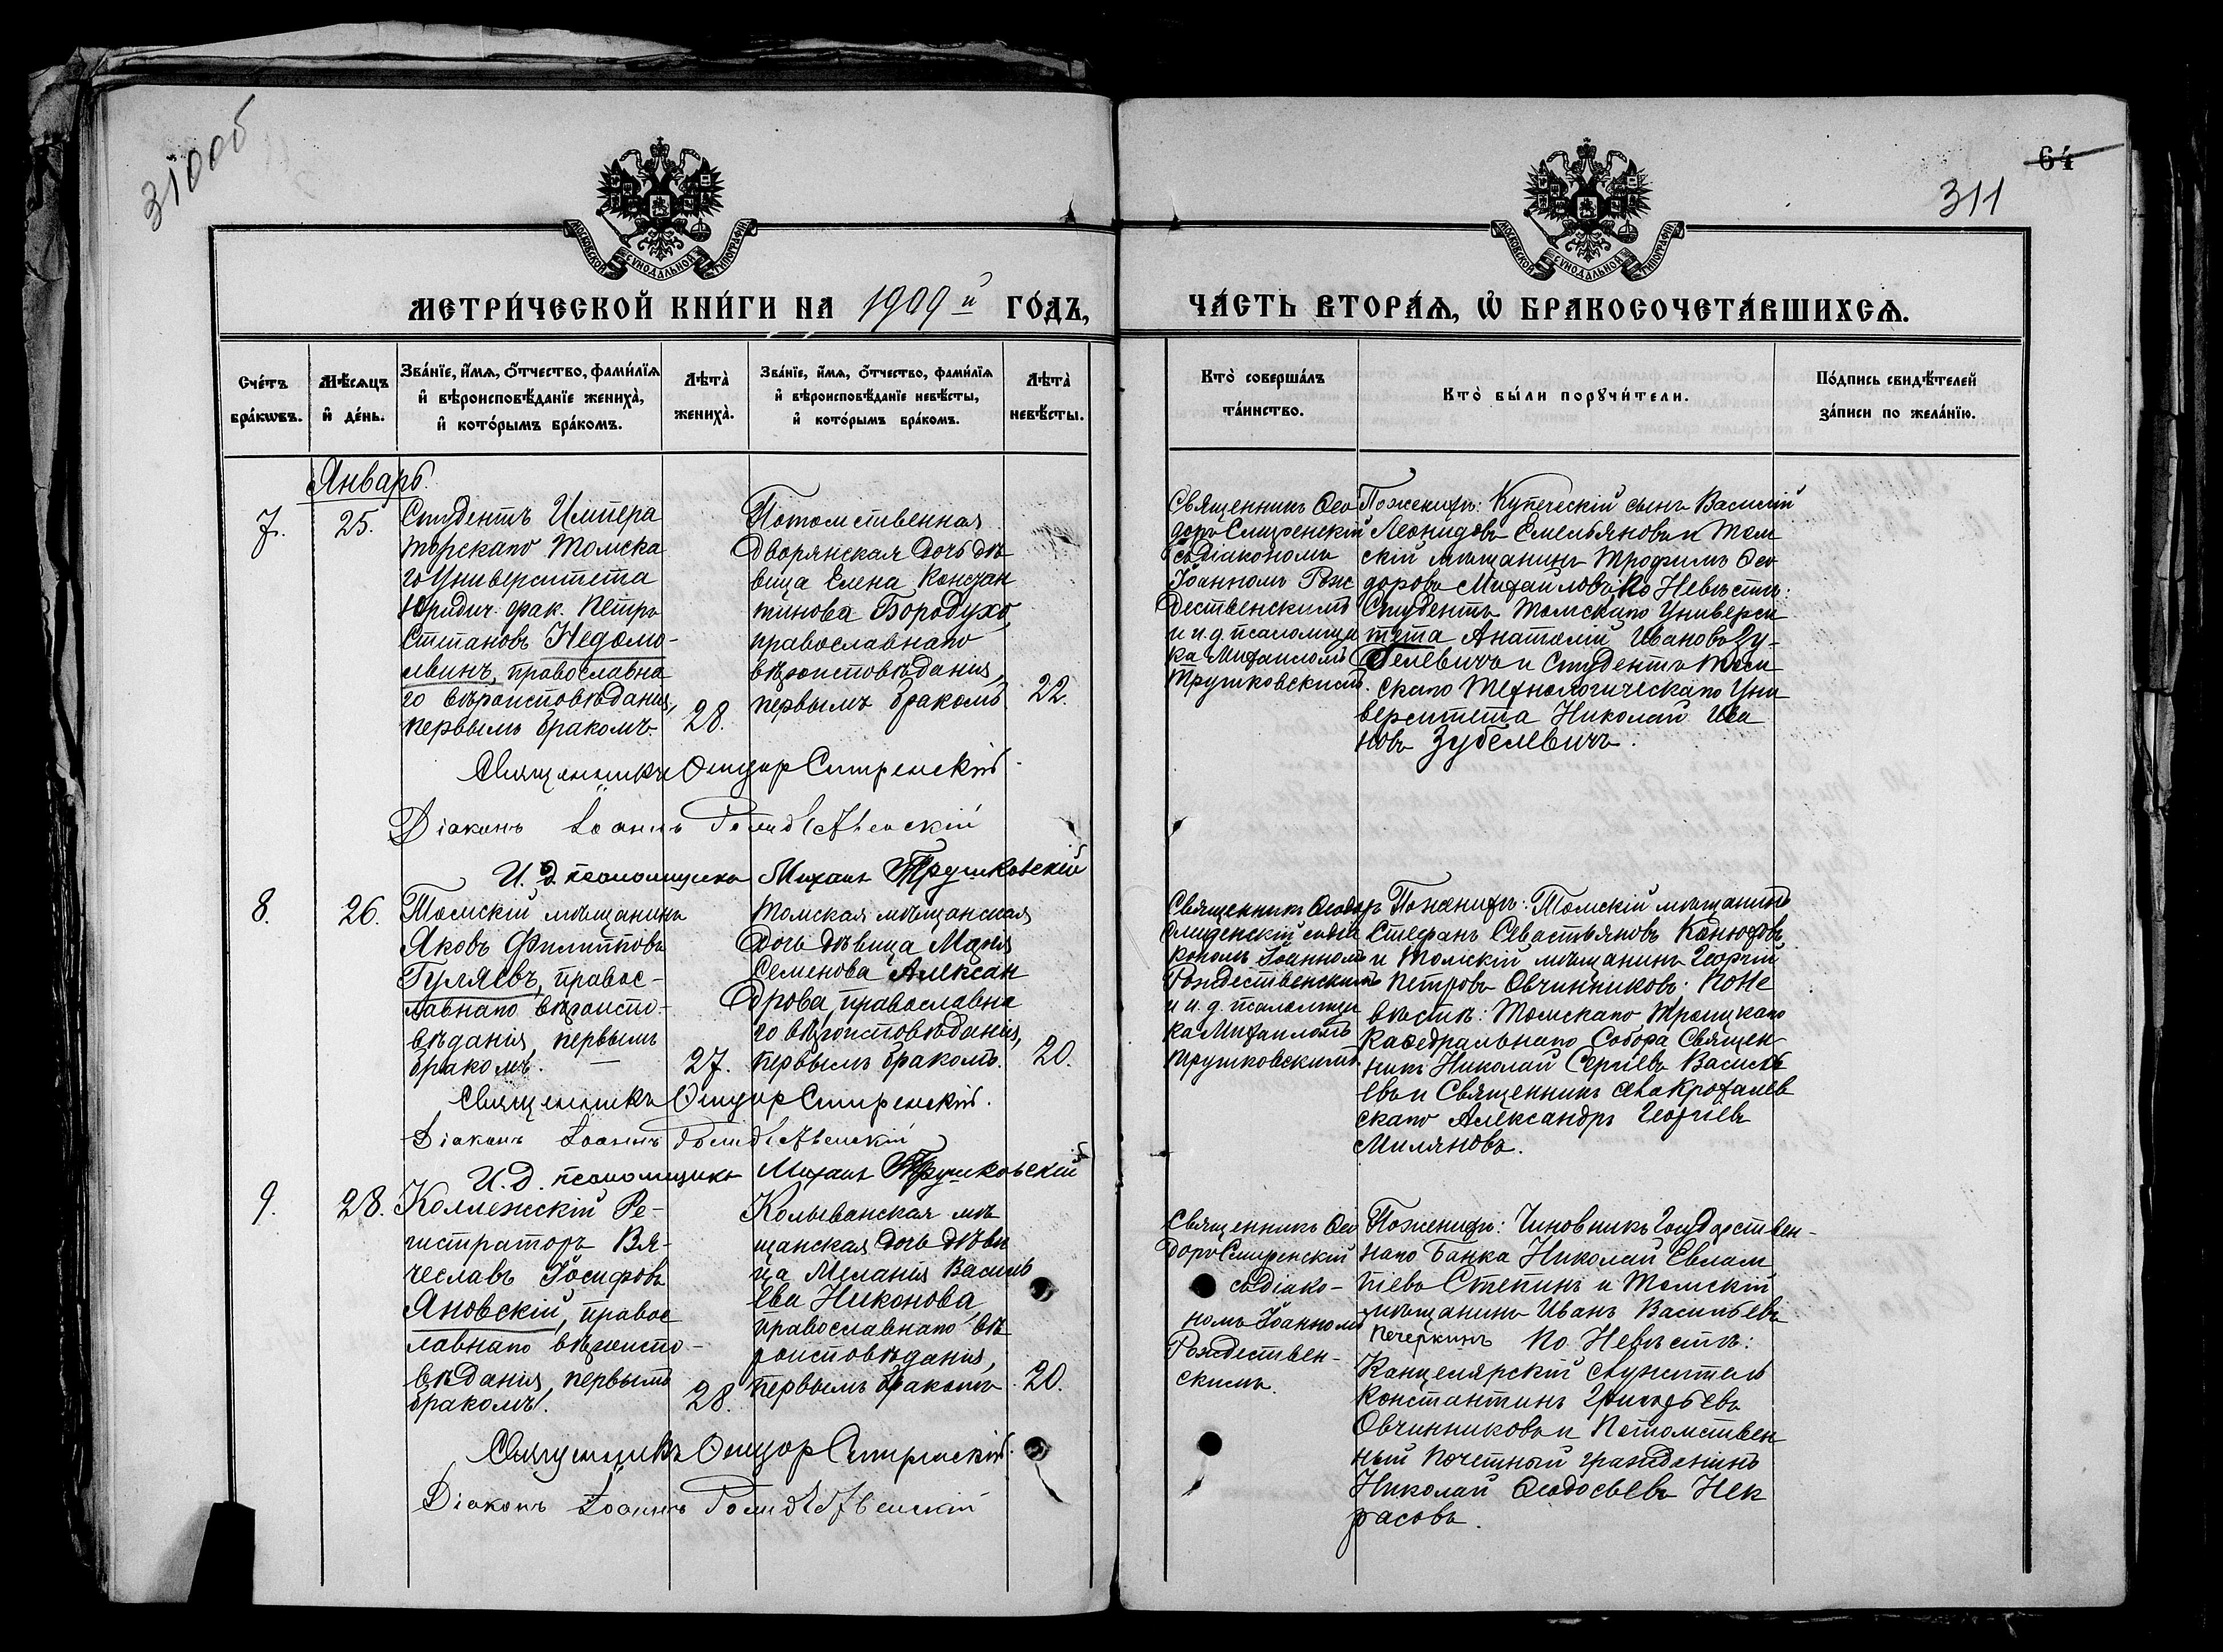 310 об
64
311
МОСКОВСКОЙ СѴНОДАЛЬНОЙ ТИПОГРАФІИ
МОСКОВСКОЙ СѴНОДАЛЬНОЙ ТИПОГРАФІИ
МЕТРИ́ЧЕСКОЙ КНИ́ГИ НА 1909й ГО́ДЪ,
ЧА́СТЬ ВТОРА́Ѧ, Ѽ БРАКОСОЧЕТА́ВШИХСѦ.
Сче́тъ
бра́кѡвъ.
Мѣ́сѧцъ
и҆ де́нь.
Зва́нїе, и҆́мѧ, ѻ҆́тчество, фами́лїѧ
и҆ вѣроисповѣ́данїе жениха̀,
и҆ кото́рымъ бра́комъ.
Лѣта̀
жениха̀.
Зва́нїе, и҆́мѧ, ѻ҆́тчество, фами́лїѧ
и҆ вѣроисповѣ́данїе невѣ́сты,
и҆ кото́рымъ бра́комъ.
Лѣта̀
невѣ́сты.
Кто̀ соверша́лъ
та́инство.
Кто̀ бы́ли порꙋчи́тели.
По́дпись свидѣ́телей
за́писи по жела́нїю.
Январь.
7.
25.
Студентъ Импера
торскаго Томска
го Университета
Юридич. фак. Петръ
Степановъ Недомо-
лвинъ, православна
го вѣроисповѣданія,
первымъ бракомъ
28.
Потомственная
Дворянская дочь дѣ
вица Елена Констан
тинова Бородухо,
православнаго
вѣроисповѣданія,
первымъ бракомъ
22.
Священникъ Ѳео
доръ Смиренскій
съ Діакономъ
Іоанномъ Рож
дественскимъ
и и.д. псаломщи
ка Михаиломъ
Трушковскимъ.
По женихѣ: Купеческій сынъ Василій
Леонидовъ Емельяновъ и Том
скій мѣщанинъ Трофимъ Ѳео
доровъ Михайловъ; По Невѣстѣ:
Студентъ Томскаго Универси
тета Анатолій Ивановъ Зу-
белевичъ и Студентъ Том
скаго Технологическаго Уни
верситета Николай Ива
новъ Зубелевичъ.
Священникъ Ѳеодоръ Смиренскій.
Діаконъ Іоаннъ Рождественскій
И. д. псаломщика Михаилъ Трушковскій
8.
26.
Томскій мѣщанинъ
Яковъ Филипповъ
Гуляевъ, правос-
лавнаго вѣроиспо-
вѣданія, первымъ
бракомъ. —
27.
Томская мѣщанская
дочь дѣвица Марія
Семенова Алексан
дрова, православна
го вѣроисповѣданія,
первымъ бракомъ.
20.
Священникъ Ѳеодоръ
Смиренскій съ Діа
кономъ Іоанномъ
Рождественскимъ
и и.д. псаломщи
ка Михаиломъ
Трушковскимъ.
По женихѣ: Томскій мѣщанинъ
Стефанъ Севастьяновъ Канюковъ
и Томскій мѣщанинъ Георгій
Петровъ Овчинниковъ. По Не
вѣстѣ: Томскаго Троицкаго
Каѳедральнаго Собора Священ-
никъ Николай Сергіевъ Василь
евъ и Священникъ села Крохалев
скаго Александръ Георгіевъ
Миляновъ.
Священникъ Ѳеодоръ Смиренскій.
Діаконъ Іоаннъ Рождественскій
И. д. псаломщика Михаилъ Трушковскій
9.
28.
Коллежскій Ре-
гистраторъ Вя-
чеславъ Іосифовъ
Яновскій, правос
лавнаго вѣроиспо-
вѣданія, первымъ
бракомъ.
28.
Колыванская мѣ
щанская дочь дѣви
ца Меланія Василь
ева Никонова,
православнаго вѣ
роисповѣданія,
первымъ бракомъ
20.
Священникъ Ѳео
доръ Смиренскій
съ Діако-
номъ Іоанномъ
Рождествен-
скимъ.
По женихѣ: Чиновникъ Государствен-
наго Банка Николай Евлам
піевъ Степинъ и Томскій
мѣщанинъ Иванъ Васильевъ
Печеркинъ По Невѣстѣ:
Канцелярскій служитель
Константинъ Григорьевъ
Овчинниковъ и Потомствен
ный почетный гражданинъ
Николай Ѳеодосьевъ Нек
расовъ.
Священникъ Ѳеодоръ Смиренскій.
Діаконъ Іоаннъ Рождественскій